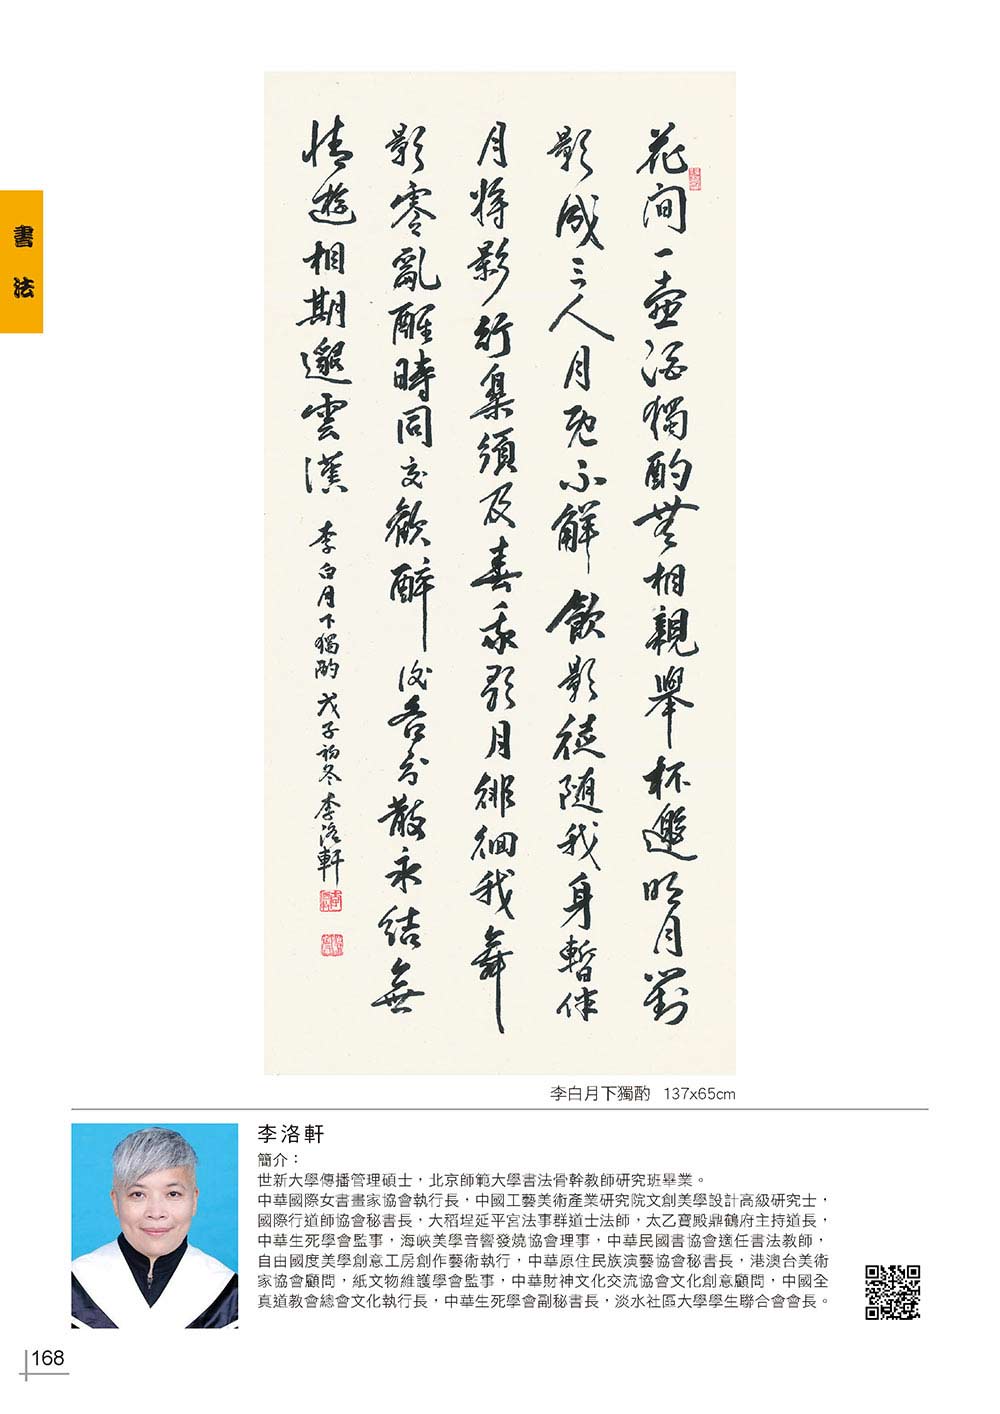 書法
花間一壺酒獨酌無相親舉杯邀明月對
影成三人月既不解飲影徒随我身暫伴
月將影行樂須及春我歌月徘徊我舞
影零亂醒時同交歡醉後各分散永結無
情遊相期邈雲漢 李白月下獨酌 戊子初冬李洛軒
李白月下獨酌 137x65cm
李洛軒
簡介：
世新大學傳播管理碩士，北京師範大學書法骨幹教師研究班畢業。
中華國際女書畫家協會執行長，中國工藝美術產業研究院文創美學設計高級研究士，
國際行道師協會秘書長，大稻埕延平宮法事群道士法師，太乙寶殿鼎鶴府主持道長，
中華生死學會監事，海峽美學音響發燒協會理事，中華民國書協會適任書法教師，
自由國度美學創意工房創作藝術執行，中華原住民族演藝協會秘書長，港澳台美術
家協會顧問，紙文物維護學會監事，中華財神文化交流協會文化創意顧問，中國全
真道教會總會文化執行長，中華生死學會副秘書長，淡水社區大學學生聯合會會長。
168